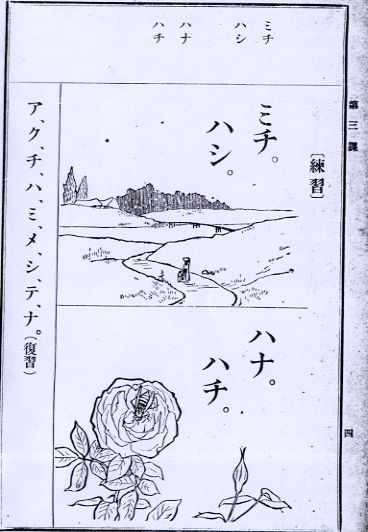 第三課
四
ミチ
ハシ
ハナ
ハチ
〔練習〕
ミチ。
ハシ。
ハナ。
ハチ。
ア、ク、チ、ハ、ミ、メ、シ、テ、ナ。(復習)